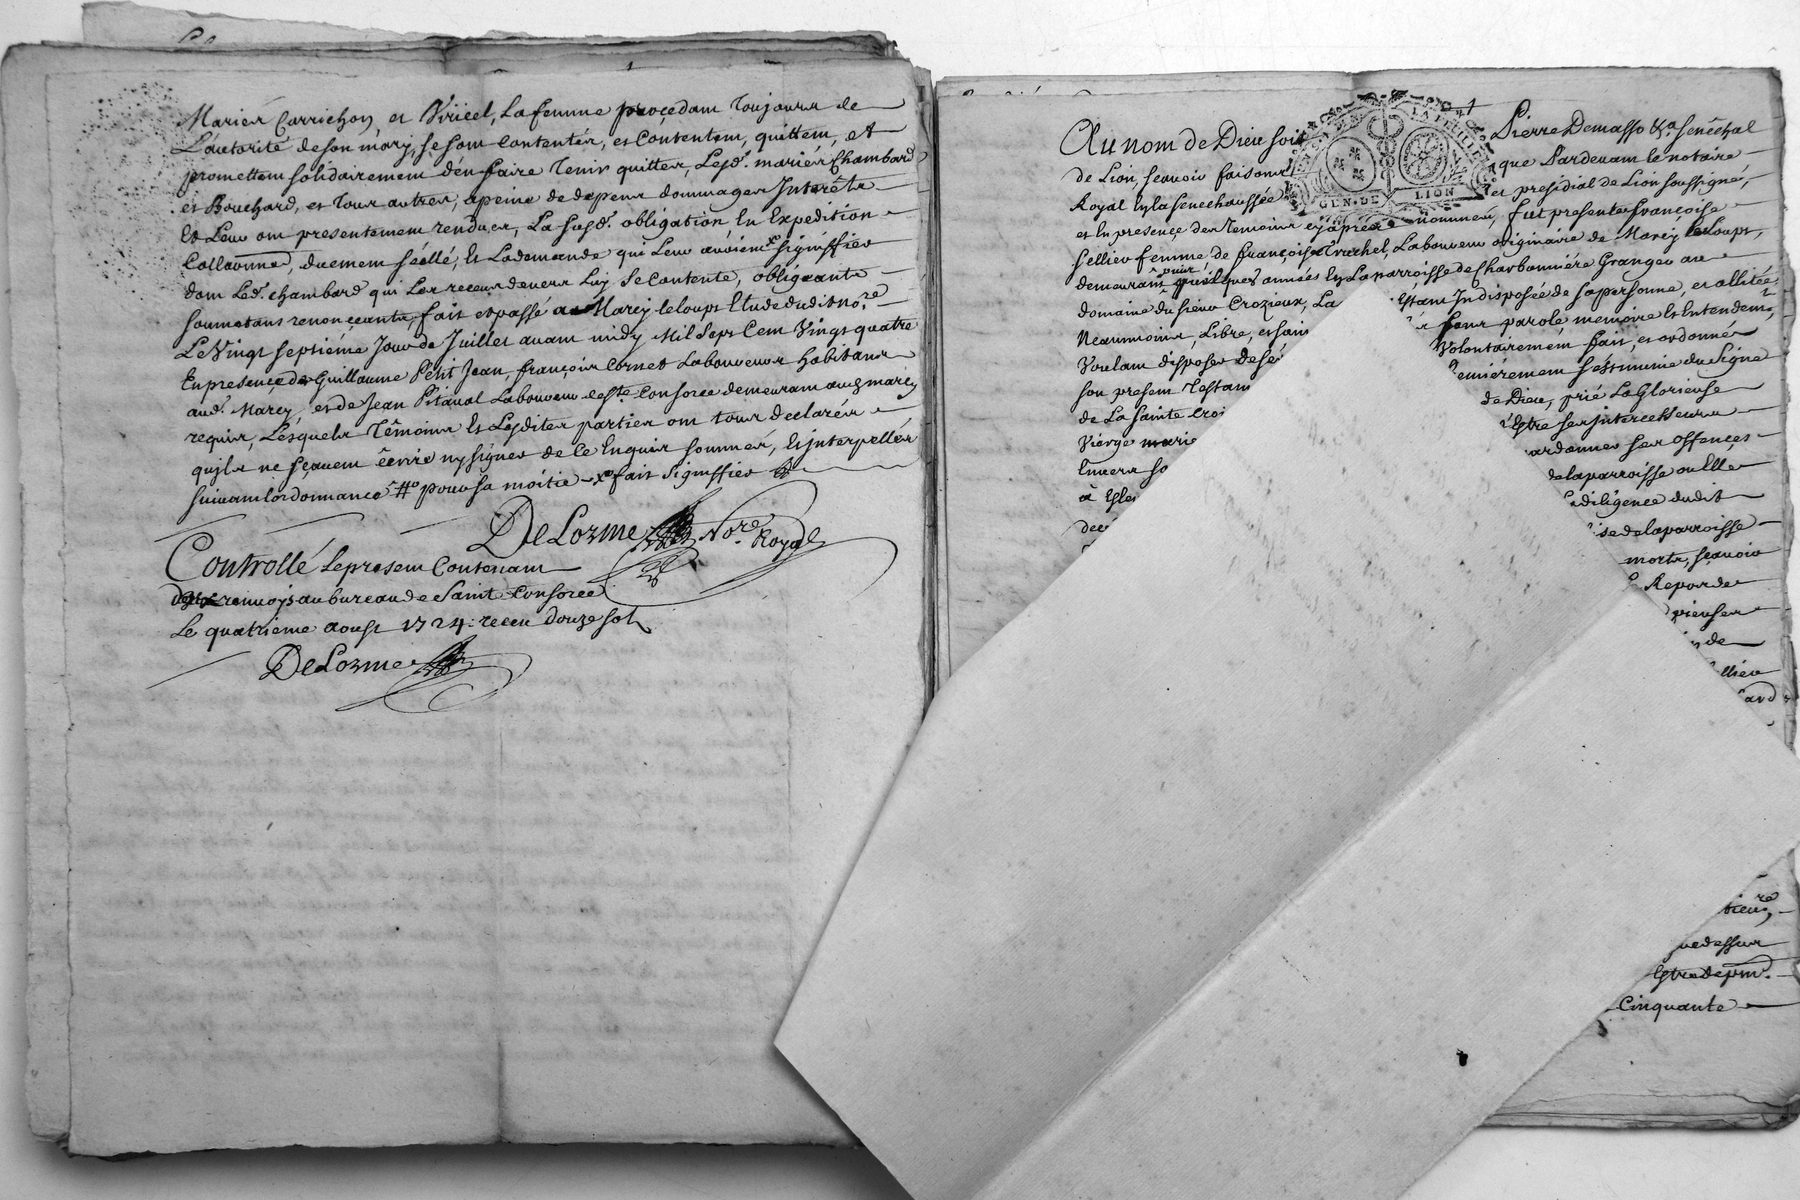 Mariés Carrichon, et Viricel, la femme procedant Toujours de
L'autorité de son màry, se sont Contentés, et Contentent, quittent, et
promettent solidairement d'en faire Tenir quittes, Lesd. mariés Chambard
et Bouchard, et Tous autres, apeine de depens dommages Interêts
Et Leur ont presentement rendues, La susd. obligation En Expedition
Collaonnée, duement séellé, et La demande qui Leur avoient x signiffier
dont Led. chambard qui Les receus devers Luy Se Contente, obligeants
soumetans renonçeants, fait et passé a Marcy-le loups Etude dudit no.re
Le Vingt septiéme Jour de Juillet avant midy Mil Sept Cent Vingt quatre
En presençe de Guillaume Petit Jean, françois Cornet Laboureurs habitans
aud. Marcy, et de Jean Pitaval Laboureur de Ste Consorce demeurant aud marcy
requis, Lésquels Têmoins et Lesdites parties ont tous declarés
qu'ils ne sçavent êcrire ny signer de ce Enquis sommés, et interpellés
suivant l'ordonnance pour sa moitie x fait Signiffier
DeLorme No.re Royal
Controllé Le presen Contenan
deux renvoys au bureau de Saint Consorce
Le quatrieme aoust 1724: receu douze sols
DeLorme
Au nom de Dieu soit
Pierre Demasso &.a senêchal
de Lion, sçavoir faisons
que Pardevant le notaire
Royal En la senechaussée
et presidial de Lion soussigné,
et En presençe des Temoins cy aprés nommés, fut presente françoise
sellier femme de françois Truchet, Laboureur originaire de Marcy le Loups,
demeurant depuis quelques années En La parroisse de Charbonniére Granger au
domaine du sieur Crozieux, La
Estant Indisposée de sa personne, et allitée
Neaumoins Libre, et sain
sens parole memoire et Entendemt,
Voulant disposer de sé
Volontairement fait, et ordonné
son present Testam
s'est munie du Signe
de La Sainte Croi
de Dieu, prié La Glorieuse
Vierge marie
Estre ses intercesseurs
Envers so
pardonner ses offençes
à Egle
de la parroisse ou Elle
dec
diligence dudit
ise de la parroisse
morts, sçavoir
Repos de
pieuses
de
ellier
ard
tieur,
que dessus
Estre de prnt.
Cinquante
GEN·DE LION